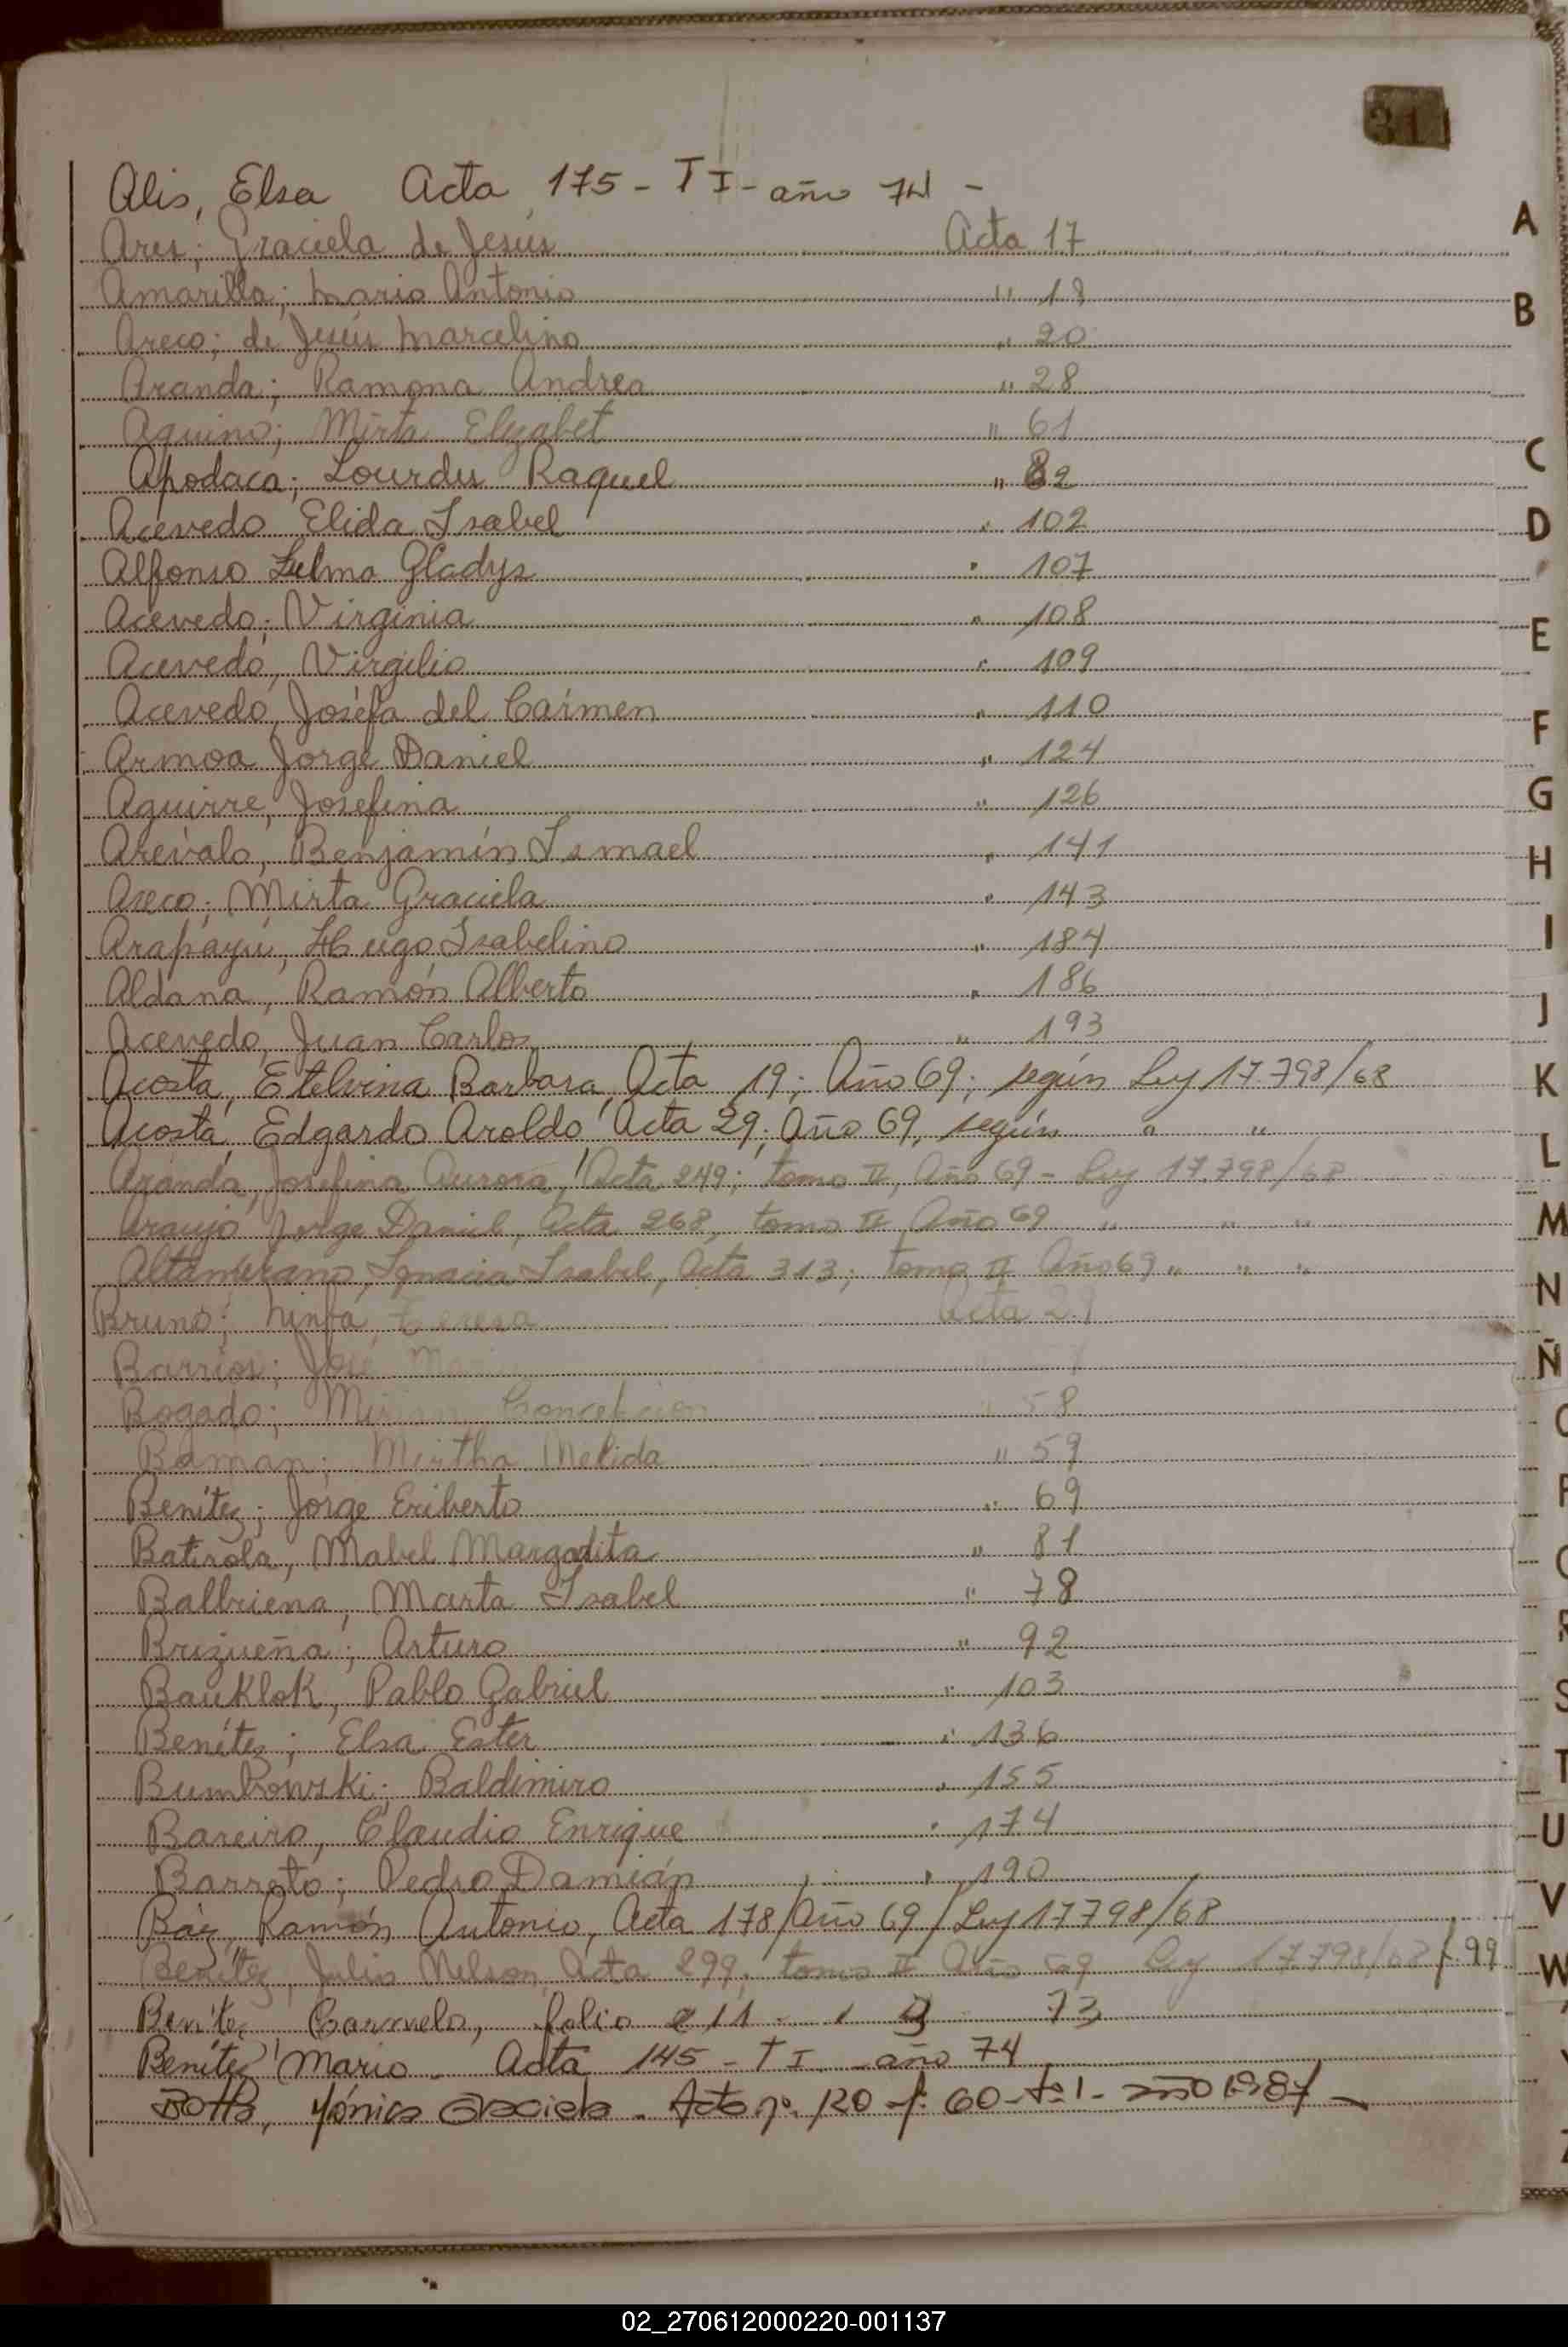 311
Alis, Elsa Acta 175 - T I - año 74 -
Ares; Graciela de Jesús Acta 17
Amarilla; Mario Antonio " 18
Areco; de Jesús Marcelino " 20
Aranda; Ramona Andrea " 28
Aquino; Mirta Elizabet " 61
Apodaca; Lourdes Raquel " 82
Acevedo Elida Isabel " 102
Alfonso Zulma Gladys " 107
Acevedo; Virginia " 108
Acevedo, Virgilio " 109
Acevedo, Josefa del Carmen " 110
Armoa Jorge Daniel " 124
Aguirre, Josefina " 126
Arévalo, Benjamín Ismael " 141
Areco; Mirta Graciela " 143
Arapayú, Hugo Isabelino " 184
Aldana, Ramón Alberto " 186
Acevedo, Juan Carlos " 193
Acosta, Etelvina Barbara, Acta 19; Año 69; según Ley 17.798/68
Acosta, Edgardo Aroldo Acta 29; Año 69, según " "
Aranda, Josefina Aurora, Acta 249; tomo II, Año 69 - Ley 17.798/68
Araujo Jorge Daniel, Acta 268, tomo II Año 69 " " "
Altamirano, Ignacia Isabel, Acta 313; Tomo II Año 69 " " "
Bruno; Ninfa Teresa Acta 21
Barrios; José
Bogado; Mirian Concepcion " 58
Mirtha Nelida " 59
Benítez; Jorge Eriberto " 69
Batirola, Mabel Margarita " 81
Balbriena, Marta Isabel " 78
Brizueña; Arturo " 92
Bauklok, Pablo Gabriel " 103
Benítez; Elsa Ester " 136
Bumbowski; Baldimiro " 155
Bareiro, Claudio Enrique " 174
Barreto; Pedro Damián " 190
Báez, Ramón Antonio, Acta 178/Año 69/Ley 17798/68
Benítez, Julio Nelson, Acta 299, tomo II Año 69 Ley 17.798/68 f. 99
Benítez Carmelo, folio 211 - 73
Benítez Mario - Acta 145 - T I - año 74
Mónica Graciela - Acta nº. 120 f: 60 - tº 1 - año 1987 -
A
B
C
D
E
F
G
H
I
J
K
L
M
N
Ñ
U
V
W
02_270612000220-001137